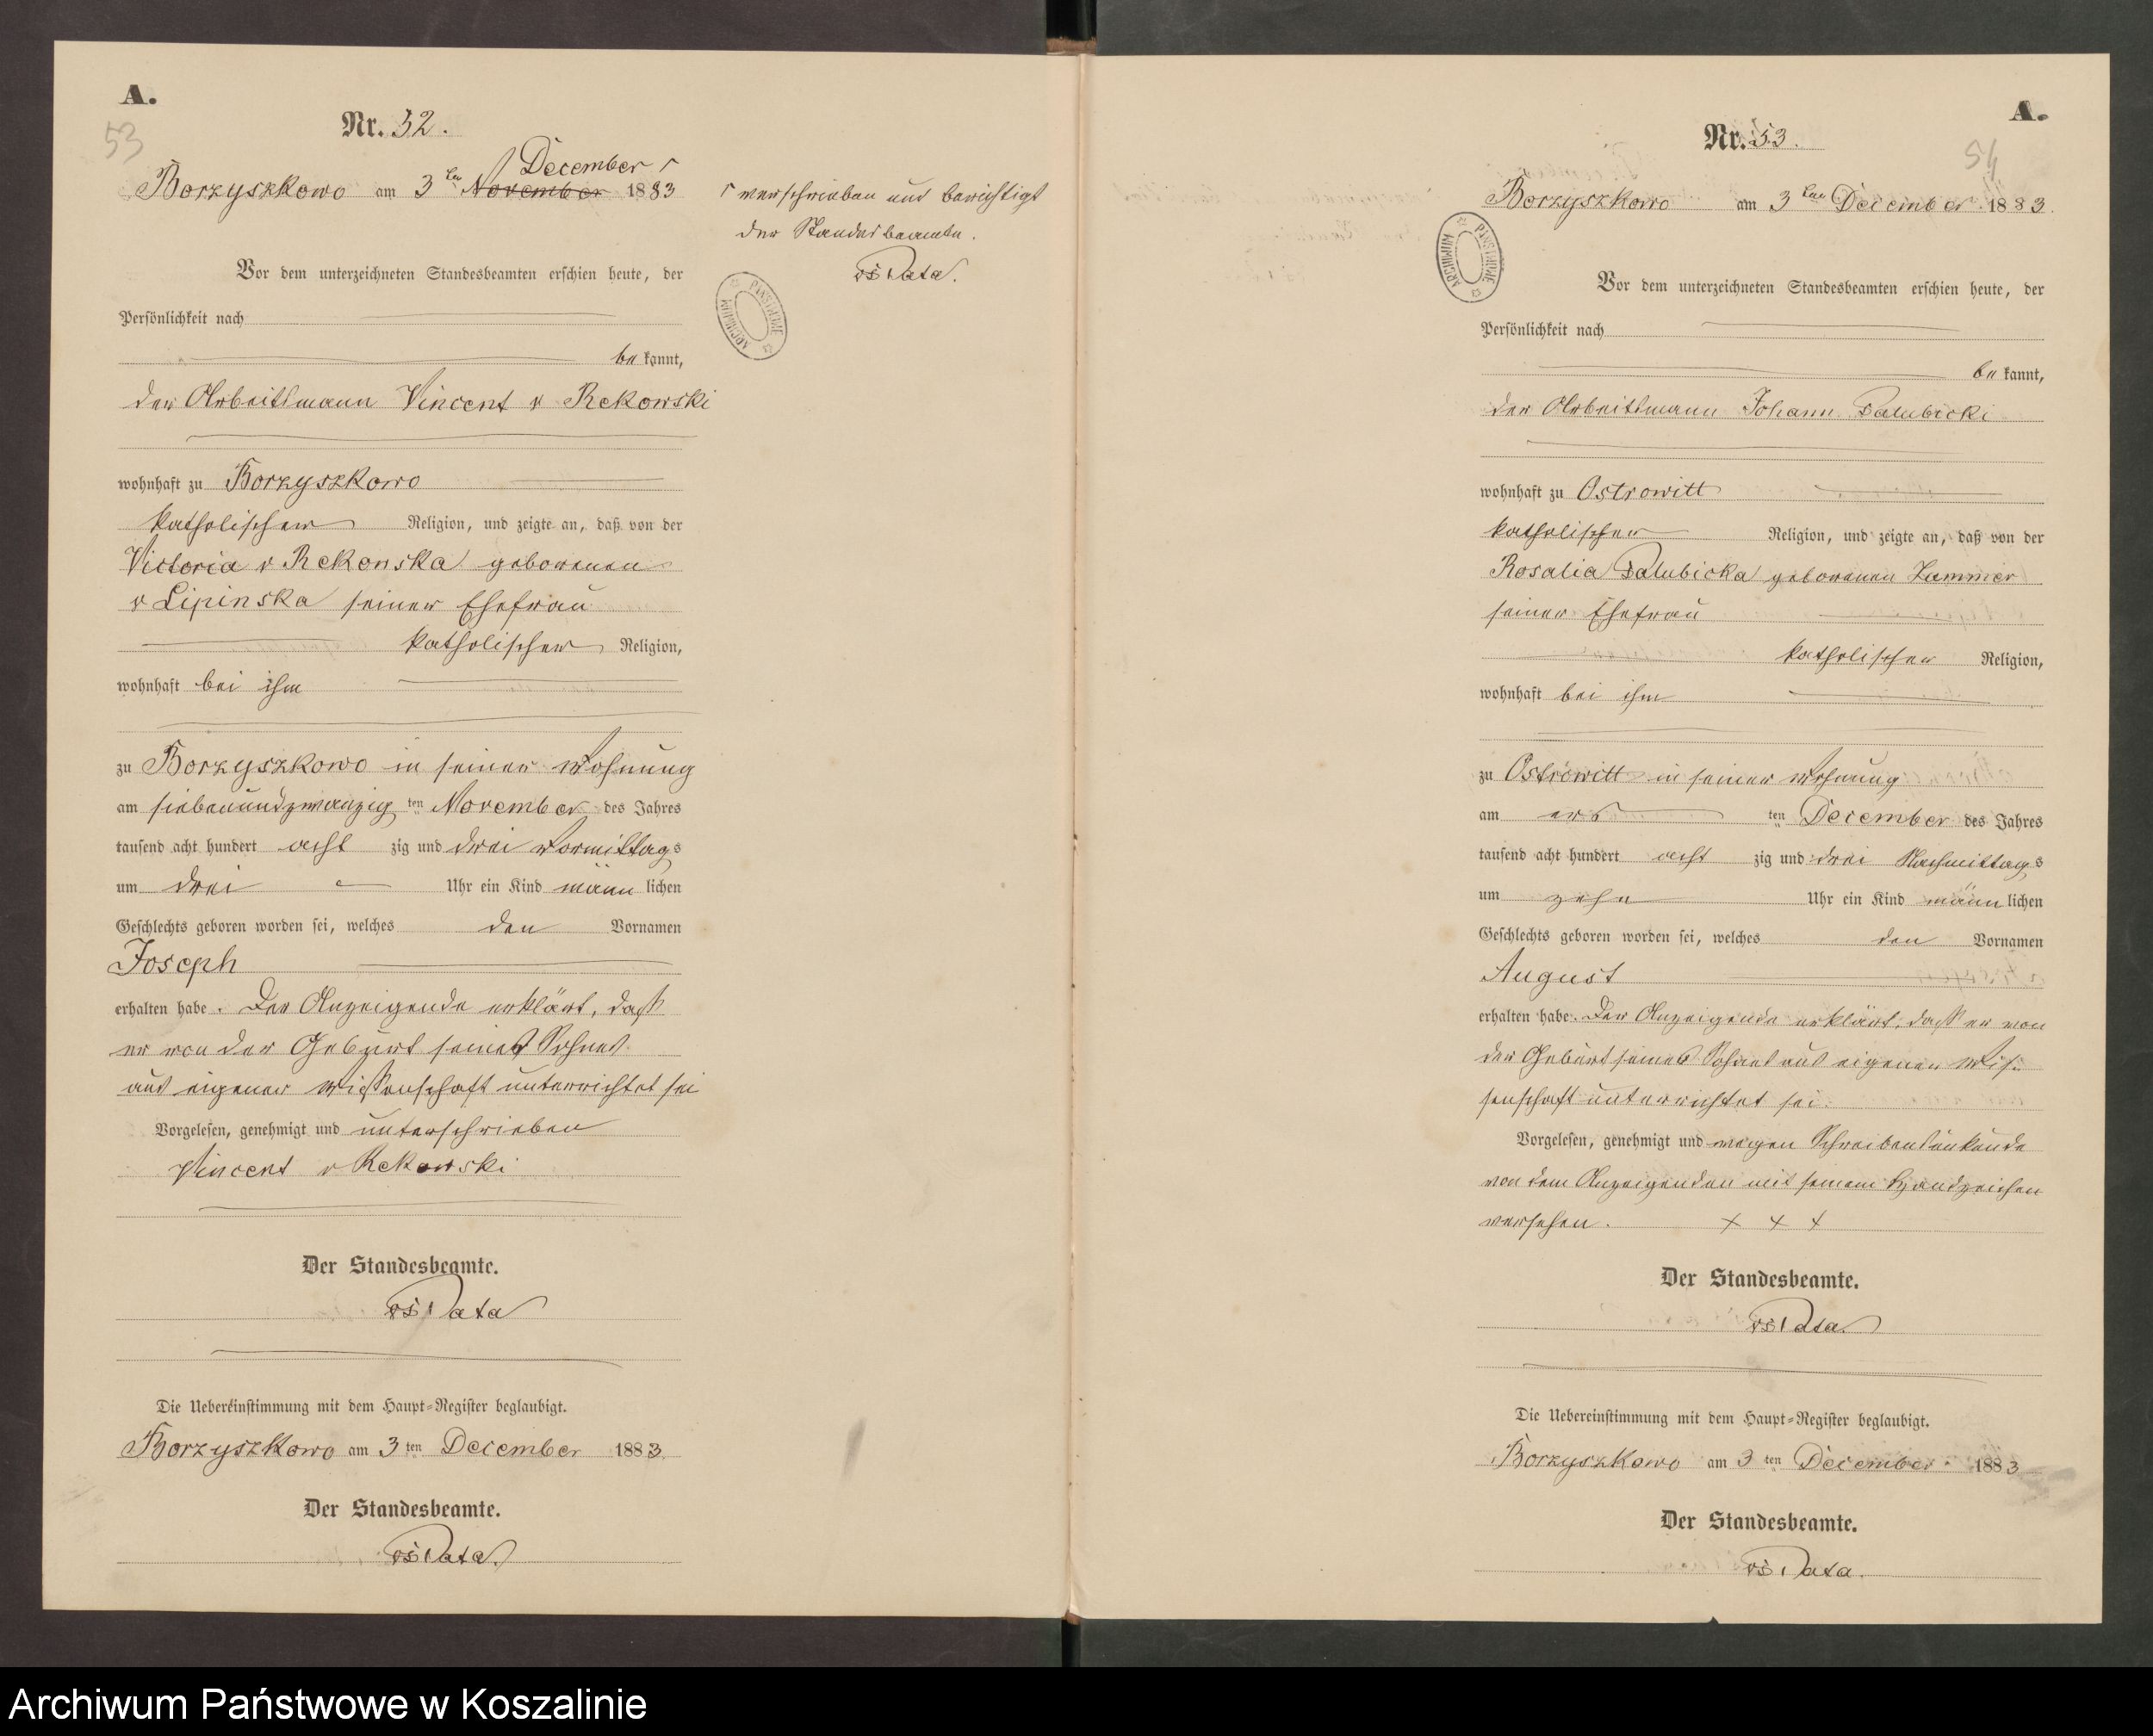 A.
53
Nr. 52.
December
Borzyszkowo am 3ten November 1883
verschrieben und berichtigt
der Standesbeamte.
Vor dem unterzeichneten Standesbeamten erschien heute, der
Persönlichkeit nach
be kannt,
der Arbeitsmann Vincent v Rekowski
wohnhaft zu Borzyszkowo
katholischer Religion, und zeigte an, daß von der
Victoria v Rekowska geborenen
v Lipinska seiner Ehefrau
katholischer Religion,
wohnhaft bei ihm
zu Borzyszkowo in seiner Wohnung
am siebenundzwanzig ten November des Jahres
tausend acht hundert acht zig und drei Vormittags
um drei Uhr ein Kind männ lichen
Geschlechts geboren worden sei, welches den Vornamen
Joseph
erhalten habe. Der Anzeigende erklärt, daß
er von der Geburt seines Sohnes
aus eigener Wissenschaft unterrichtet sei
Vorgelesen, genehmigt und unterschrieben
Vincent v Rekowski
Der Standesbeamte.
Die Uebereinstimmung mit dem Haupt-Register beglaubigt.
Borzyszkowo am 3 ten December 1883.
Der Standesbeamte.
ARCHIWUM PAŃSTWOWE
A.
54
Nr. 53.
Borzyszkowo am 3ten December 1883.
ARCHIWUM PAŃSTWOWE
Vor dem unterzeichneten Standesbeamten erschien heute, der
Persönlichkeit nach
be kannt,
der Arbeitsmann Johann Palubicki
wohnhaft zu Ostrowitt
katholischer Religion, und zeigte an, daß von der
Rosalia Palubicka geborenen
seiner Ehefrau
katholischer Religion,
wohnhaft bei ihm
zu Ostrowitt in seiner Wohnung
am ers ten December des Jahres
tausend acht hundert acht zig und drei Nachmittags
um zehn Uhr ein Kind männ lichen
Geschlechts geboren worden sei, welches den Vornamen
August
erhalten habe. Der Anzeigende erklärt, daß er von
der Geburt seines Sohnes aus eigener Wis-
senschaft unterrichtet sei.
Vorgelesen, genehmigt und wegen Schreibensunkunde
von dem Anzeigenden mit seinem Handzeichen
versehen. + + +
Der Standesbeamte.
Die Uebereinstimmung mit dem Haupt-Register beglaubigt.
Borzyszkowo am 3 ten December 1883
Der Standesbeamte.
Archiwum Państwowe w Koszalinie